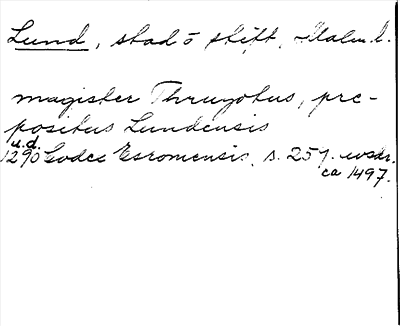 Lund, stad o stift, Malm. l.
magister Thrugotus, pre-
positus Lundensis
u.d.
1290 Codex Esromensis, s. 257. avskr.
ca 1497.